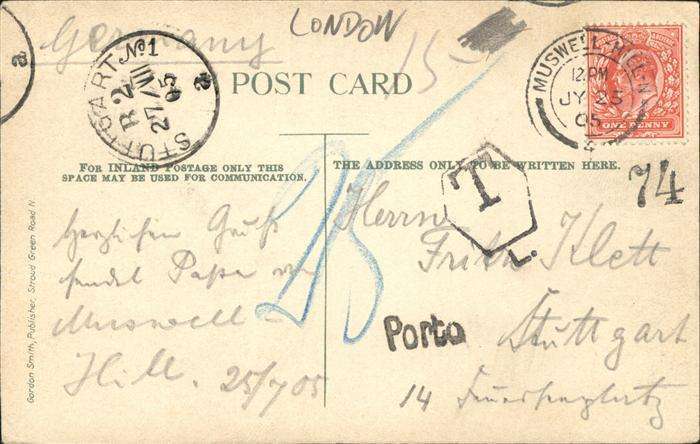 LONDON
Germany
15
POST CARD
STUTTGART No1
R 2
27/VII
05
a
a
MUSWELL-HILL.N
12.PM
JY 25
05
4
ONE PENNY
FOR INLAND POSTAGE ONLY THIS
SPACE MAY BE USED FOR COMMUNICATION.
THE ADDRESS ONLY TO BE WRITTEN HERE.
T
L.
74
25
Herzlichen Gruß
sendet Papa von
Muswell-
Hill. 25/7 05
Herrn
Fritz Klett
Porto
Stuttgart
14 Feuerseeplatz
Gordon Smith, Publisher, Stroud Green Road N.